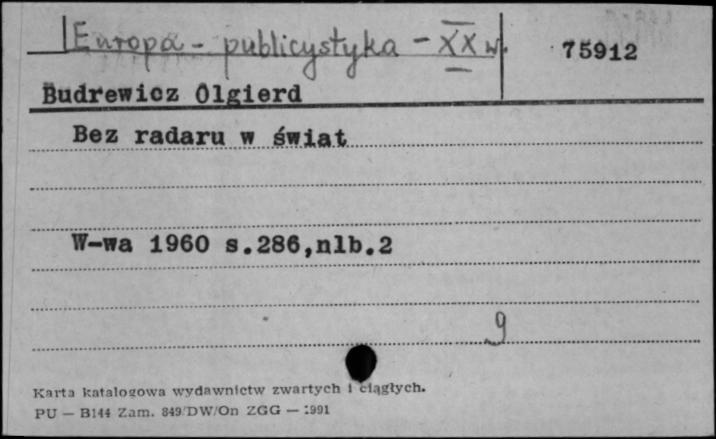 Europa - publicystyka - XX w. 75912
Budrewicz Olgierd
Bez radaru w świat
W-wa 1960 s.286,nlb.2
9
Karta katalogowa wydawnictw zwartych i ciągłych.
PU — B144 Zam. 849/DW/On ZGG — 1991